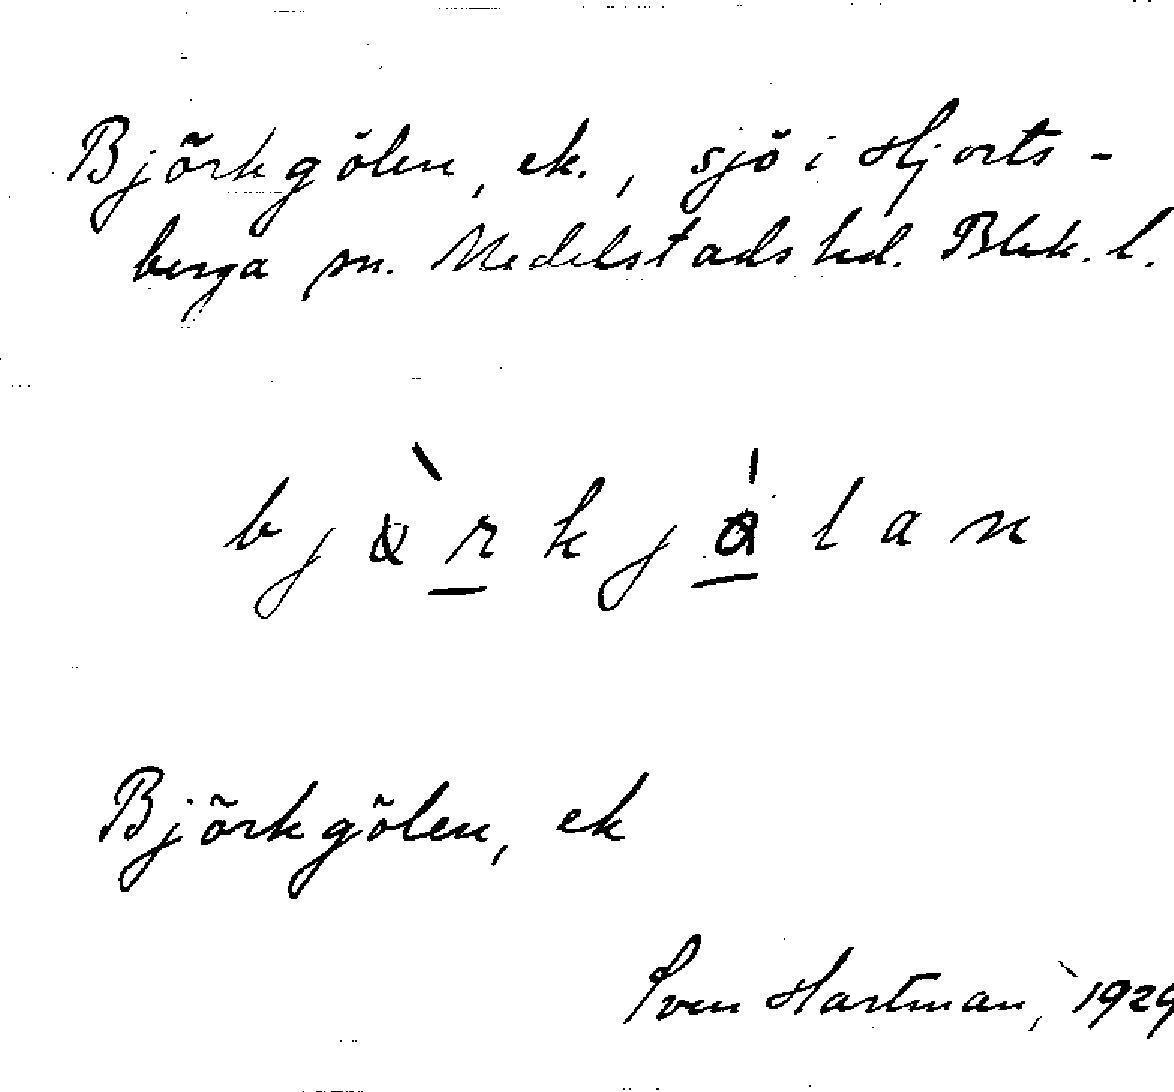 Björkgölen, ek., sjö i Hjorts-
berga sn. Medelstads hd. Blek. l.
Björkgölen, ek
Sven Hartman, 1929